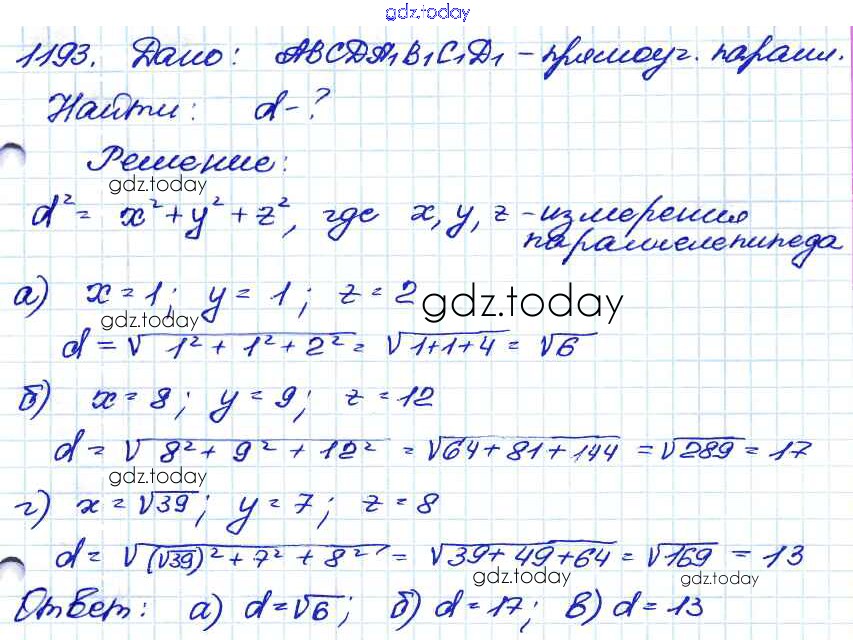 gdz.today
1193. Дано: ABCDA₁B₁C₁D₁ - прямоуг. паралл.
Найти: d-?
Решение:
gdz.today
d² = x² + y² + z², где x, y, z - измерения
параллелепипеда
а) x = 1; y = 1; z = 2 gdz.today
gdz.today
d = √1² + 1² + 2² = √1+1+4 = √6
б) x = 8; y = 9; z = 12
d = √8² + 9² + 12² = √64 + 81 + 144 = √289 = 17
gdz.today
г) x = √39; y = 7; z = 8
d = √(√39)² + 7² + 8² = √39 + 49 + 64 = √169 = 13
gdz.today gdz.today
Ответ: а) d = √6; б) d = 17; в) d = 13